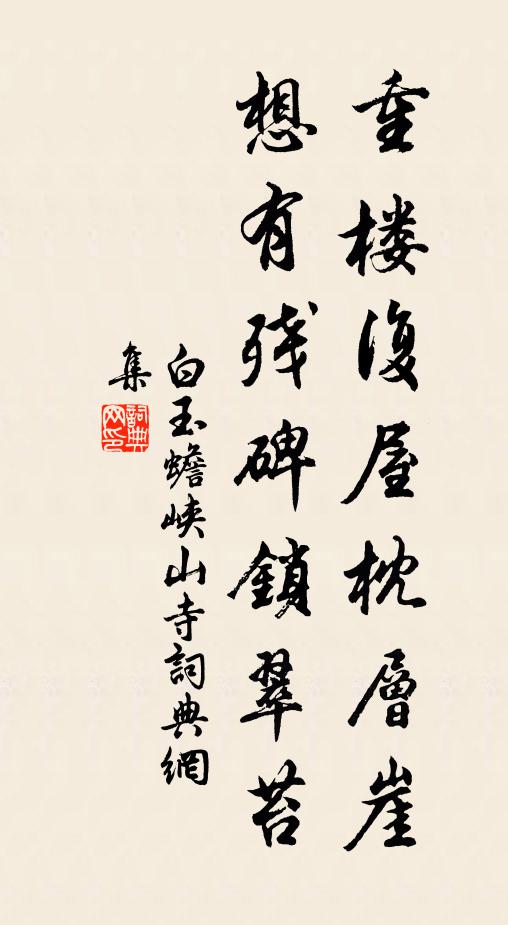 重楼復屋枕層崖
想有残碑鎖翠苔
白玉蟾峡山寺詞典網
集
詞典网印